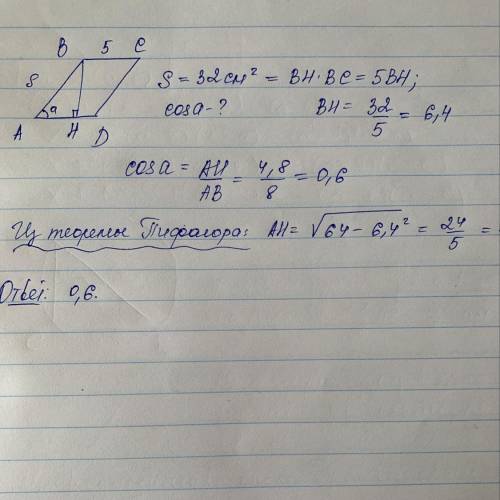 B 5 C
8
a
A H D
S = 32 см² = BH · BC = 5BH;
cosa - ?
BH = 32/5 = 6,4
cosa = AH/AB = 4,8/8 = 0,6
Из теоремы Пифагора: AH = √(64 - 6,4²) = 24/5 =
Ответ: 0,6.